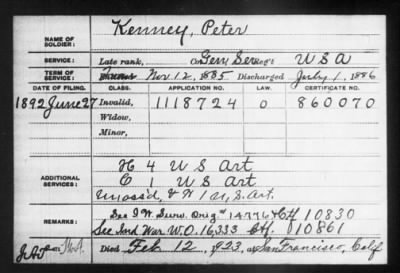 NAME OF SOLDIER: Kenney, Peter
SERVICE: Late rank, Co. Gen Ser. Reg't U S A
TERM OF SERVICE: Nov 12, 1885 Discharged July 1, 1886
DATE OF FILING. CLASS. APPLICATION NO. LAW. CERTIFICATE NO.
1892 June 27 Invalid, 1118724 0 860070
Widow,
Minor,
ADDITIONAL SERVICES: H 4 U S Art
C 1 U S Art
Unassd, V W 1 U.S. Art.
REMARKS: See I W. Surv. Orig. 14776 & Ctf 10830
See Ind War W.O. 16,333 Ctf. 10861
Died Feb 12, 1923, at San Francisco, Calif